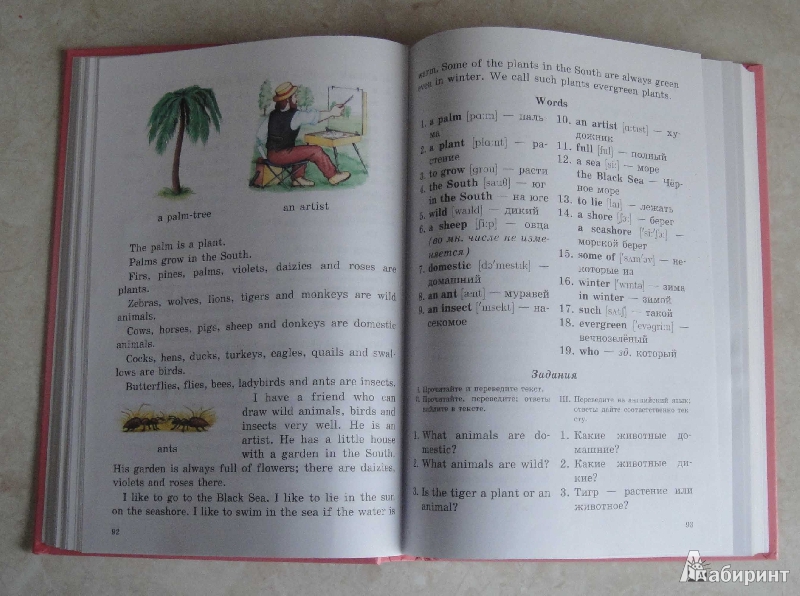 a palm-tree
an artist
The palm is a plant.
Palms grow in the South.
Firs, pines, palms, violets, daizies and roses are
plants.
Zebras, wolves, lions, tigers and monkeys are wild
animals.
Cows, horses, pigs, sheep and donkeys are domestic
animals.
Cocks, hens, ducks, turkeys, eagles, quails and swal-
lows are birds.
Butterflies, flies, bees, ladybirds and ants are insects.
I have a friend who can
draw wild animals, birds and
insects very well. He is an
artist. He has a little house
with a garden in the South.
ants
His garden is always full of flowers; there are daizies,
violets and roses there.
I like to go to the Black Sea. I like to lie in the sun
on the seashore. I like to swim in the sea if the water is
92
warm. Some of the plants in the South are always green
even in winter. We call such plants evergreen plants.
Words
1. a palm [pɑ:m] — паль-
ма
2. a plant [plɑ:nt] — ра-
стение
3. to grow [grou] — расти
4. the South [sauθ] — юг
in the South — на юге
5. wild [waıld] — дикий
6. a sheep [ʃi:p] — овца
(во мн. числе не изме-
няется)
7. domestic [də'mestık] —
домашний
8. an ant [ænt] — муравей
9. an insect ['ınsekt] — на-
секомое
10. an artist [ɑ:tıst] — ху-
дожник
11. full [ful] — полный
12. a sea [si:] — море
the Black Sea — Чёр-
ное море
13. to lie [laı] — лежать
14. a shore [ʃɔ:] — берег
a seashore ['si:'ʃɔ:] —
морской берег
15. some of ['sʌm'əv] — не-
которые из
16. winter ['wıntə] — зима
in winter — зимой
17. such [sʌtʃ] — такой
18. evergreen ['evəgri:n] —
вечнозелёный
19. who — зд. который
Задания
I. Прочитайте и переведите текст.
II. Прочитайте, переведите; ответы
найдите в тексте.
III. Переведите на английский язык;
ответы дайте соответственно тек-
сту.
1. What animals are do-
mestic?
2. What animals are wild?
3. Is the tiger a plant or an
animal?
1. Какие животные до-
машние?
2. Какие животные ди-
кие?
3. Тигр — растение или
животное?
93
Лабиринт